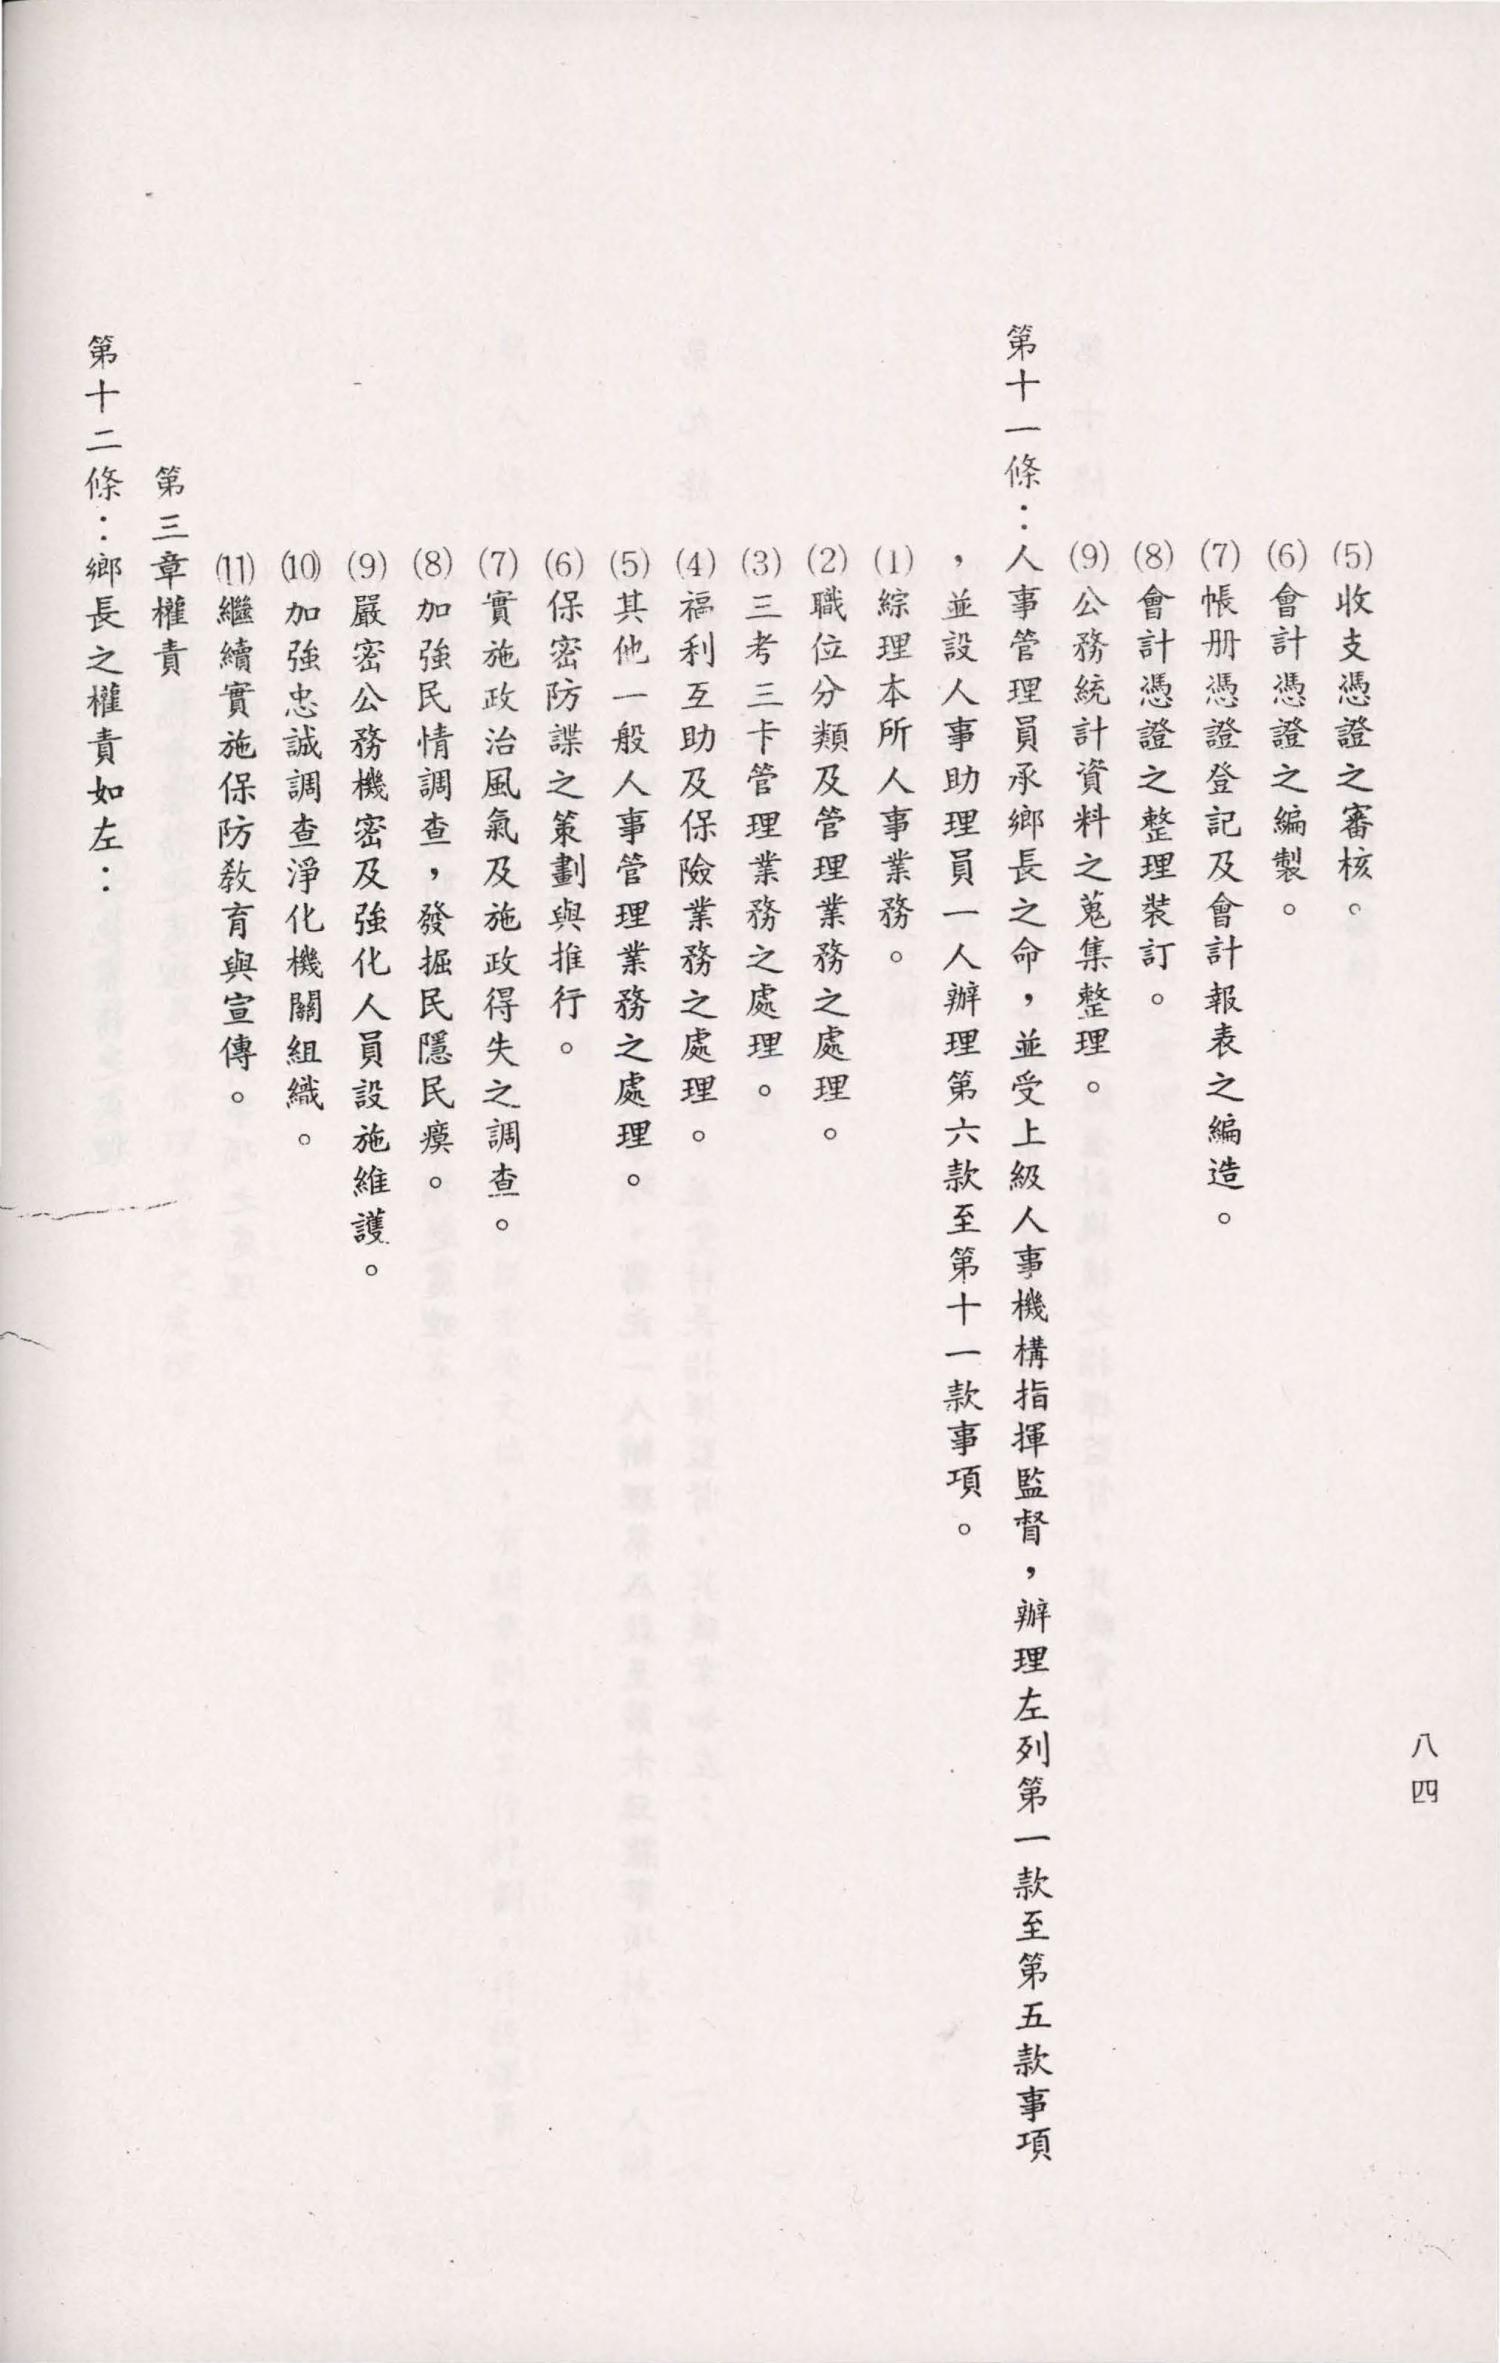 八四
(5)收支憑證之審核。
(6)會計憑證之編製。
(7)帳册憑證登記及會計報表之編造。
(8)會計憑證之整理裝訂。
(9)公務統計資料之蒐集整理。
第十一條：人事管理員承鄉長之命，並受上級人事機構指揮監督，辦理左列第一款至第五款事項
，並設人事助理員一人辦理第六款至第十一款事項。
(1)綜理本所人事業務。
(2)職位分類及管理業務之處理。
(3)三考三卡管理業務之處理。
(4)福利互助及保險業務之處理。
(5)其他一般人事管理業務之處理。
(6)保密防諜之策劃與推行。
(7)實施政治風氣及施政得失之調查。
(8)加強民情調查，發掘民隱民瘼。
(9)嚴密公務機密及強化人員設施維護。
(10)加強忠誠調查淨化機關組織。
(11)繼續實施保防教育與宣傳。
第三章權責
第十二條：鄉長之權責如左：